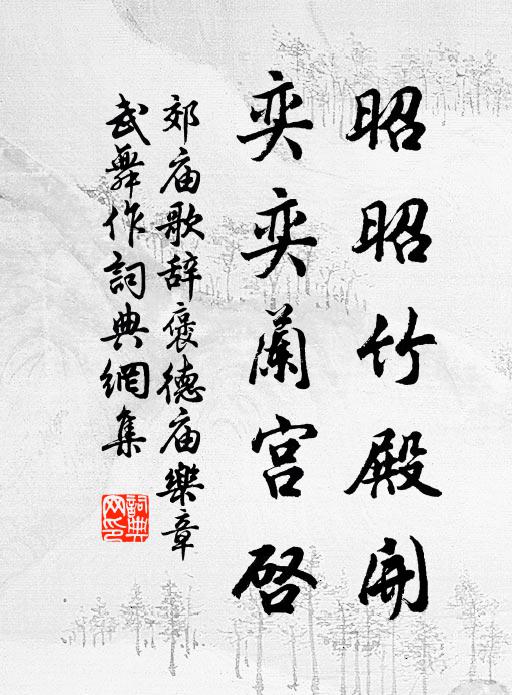 昭昭竹殿開
奕奕蘭宮啓
郊庙歌辞褒德庙樂章
武舞作詞典網集
詞典网印